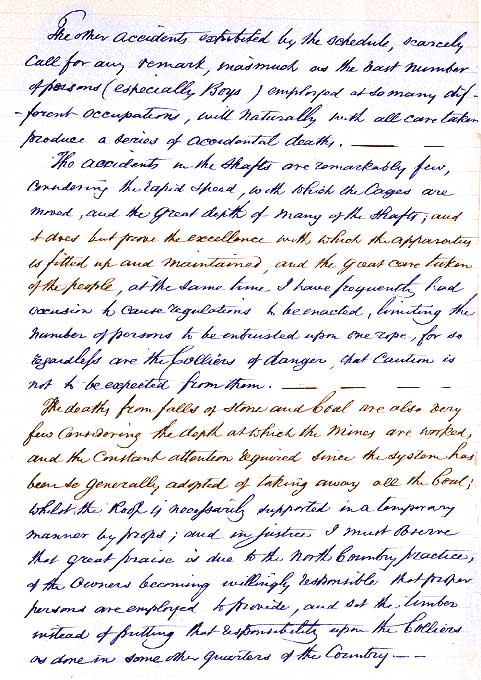 The other accidents exhibited by the schedule, scarcely
Call for any remark, inasmuch as the vast number
of persons (especially Boys) employed at so many dif-
-ferent occupations, will naturally with all care taken
produce a series of accidental deaths. — — —
The accidents in the shafts are remarkably few,
considering the rapid speed, with which the Cages are
moved, and the great depth of many of the shafts; and
it does but prove the excellence with which the apparatus
is fitted up and maintained, and the great care taken
of the people, at the same time I have frequently had
occasion to cause regulations to be enacted, limiting the
number of persons to be entrusted upon one rope, for so
regardless are the Colliers of danger, that caution is
not to be expected from them. — — —
The deaths from falls of Stone and Coal are also very
few considering the depth at which the Mines are worked,
and the Constant attention required since the system has
been so generally adopted of taking away all the Coal;
whilst the Roof is necessarily supported in a temporary
manner by props; and in justice I must observe
that great praise is due to the North Country practice,
of the Owners becoming willingly responsible that proper
persons are employed to provide, and set the timber
instead of putting that responsibility upon the Colliers
as done in some other quarters of the Country — —